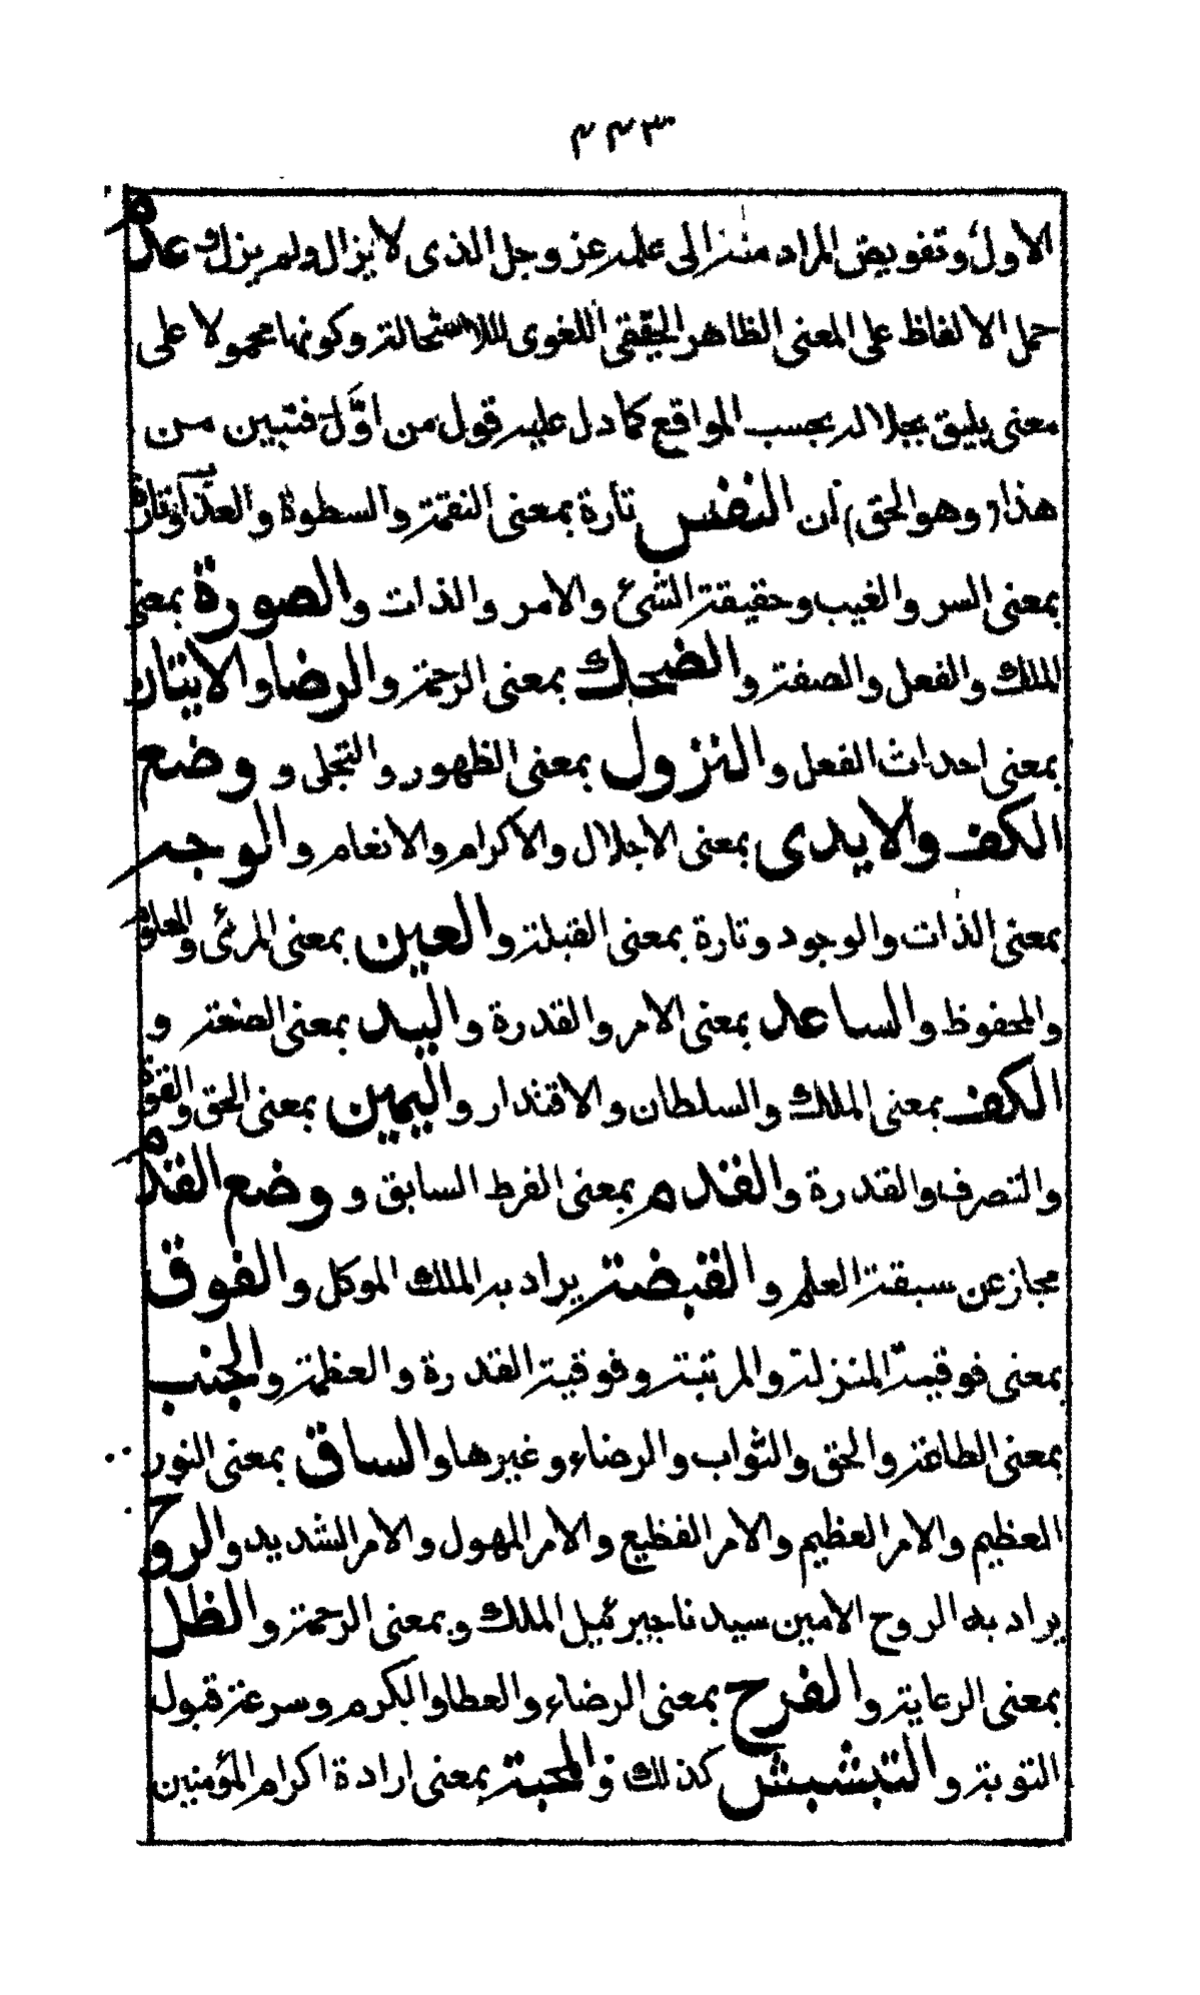 ٤٤٣
الاول وتفويض المراد منه الى علمه عز وجل الذى لا يزال ولم يزل وعدم
حمل الالفاظ على المعنى الظاهر الحقيقى اللغوى للاستحالة وكونها محمولا على
معنى يليق بجلاله بحسب المواقع كما دل عليه قول من اوّل فتبين من
هذا (وهو الحق) أن النفس تارة بمعنى النقمة والسطوة والعذاب وتارة
بمعنى السر والغيب وحقيقة الشئ والامر والذات والصورة بمعنى
الملك والفعل والصفة والضحك بمعنى الرحمة والرضا والاتيان
بمعنى احداث الفعل والنزول بمعنى الظهور والتجلى و وضع
الكف والايدى بمعنى الاجلال والاكرام والانعام والوجه
بمعنى الذات والوجود وتارة بمعنى القبلة والعين بمعنى المرئى والمعلوم
والمحفوظ والساعد بمعنى الامر والقدرة واليد بمعنى الصنعة و
الكف بمعنى الملك والسلطان والاقتدار واليمين بمعنى الحق والقوة
والتصرف والقدرة والقدم بمعنى الفرط السابق و وضع القدم
مجاز عن سبقة العلم والقبضة يراد به الملك الموكل والفوق
بمعنى فوقية المنزلة والمرتبة وفوقية القدرة والعظمة والجنب
بمعنى الطاعة والحق والثواب والرضاء وغيرها والساق بمعنى النور
العظيم والامر العظيم والامر الفظيع والامر المهول والامر الشديد والروح
يراد به الروح الامين سيدنا جبرئيل الملك وبمعنى الرحمة والظل
بمعنى الرعاية والفرح بمعنى الرضاء والعطا والكرم وسرعة قبول
التوبة والتبشبش كذلك والمحبة بمعنى ارادة اكرام المؤمنين